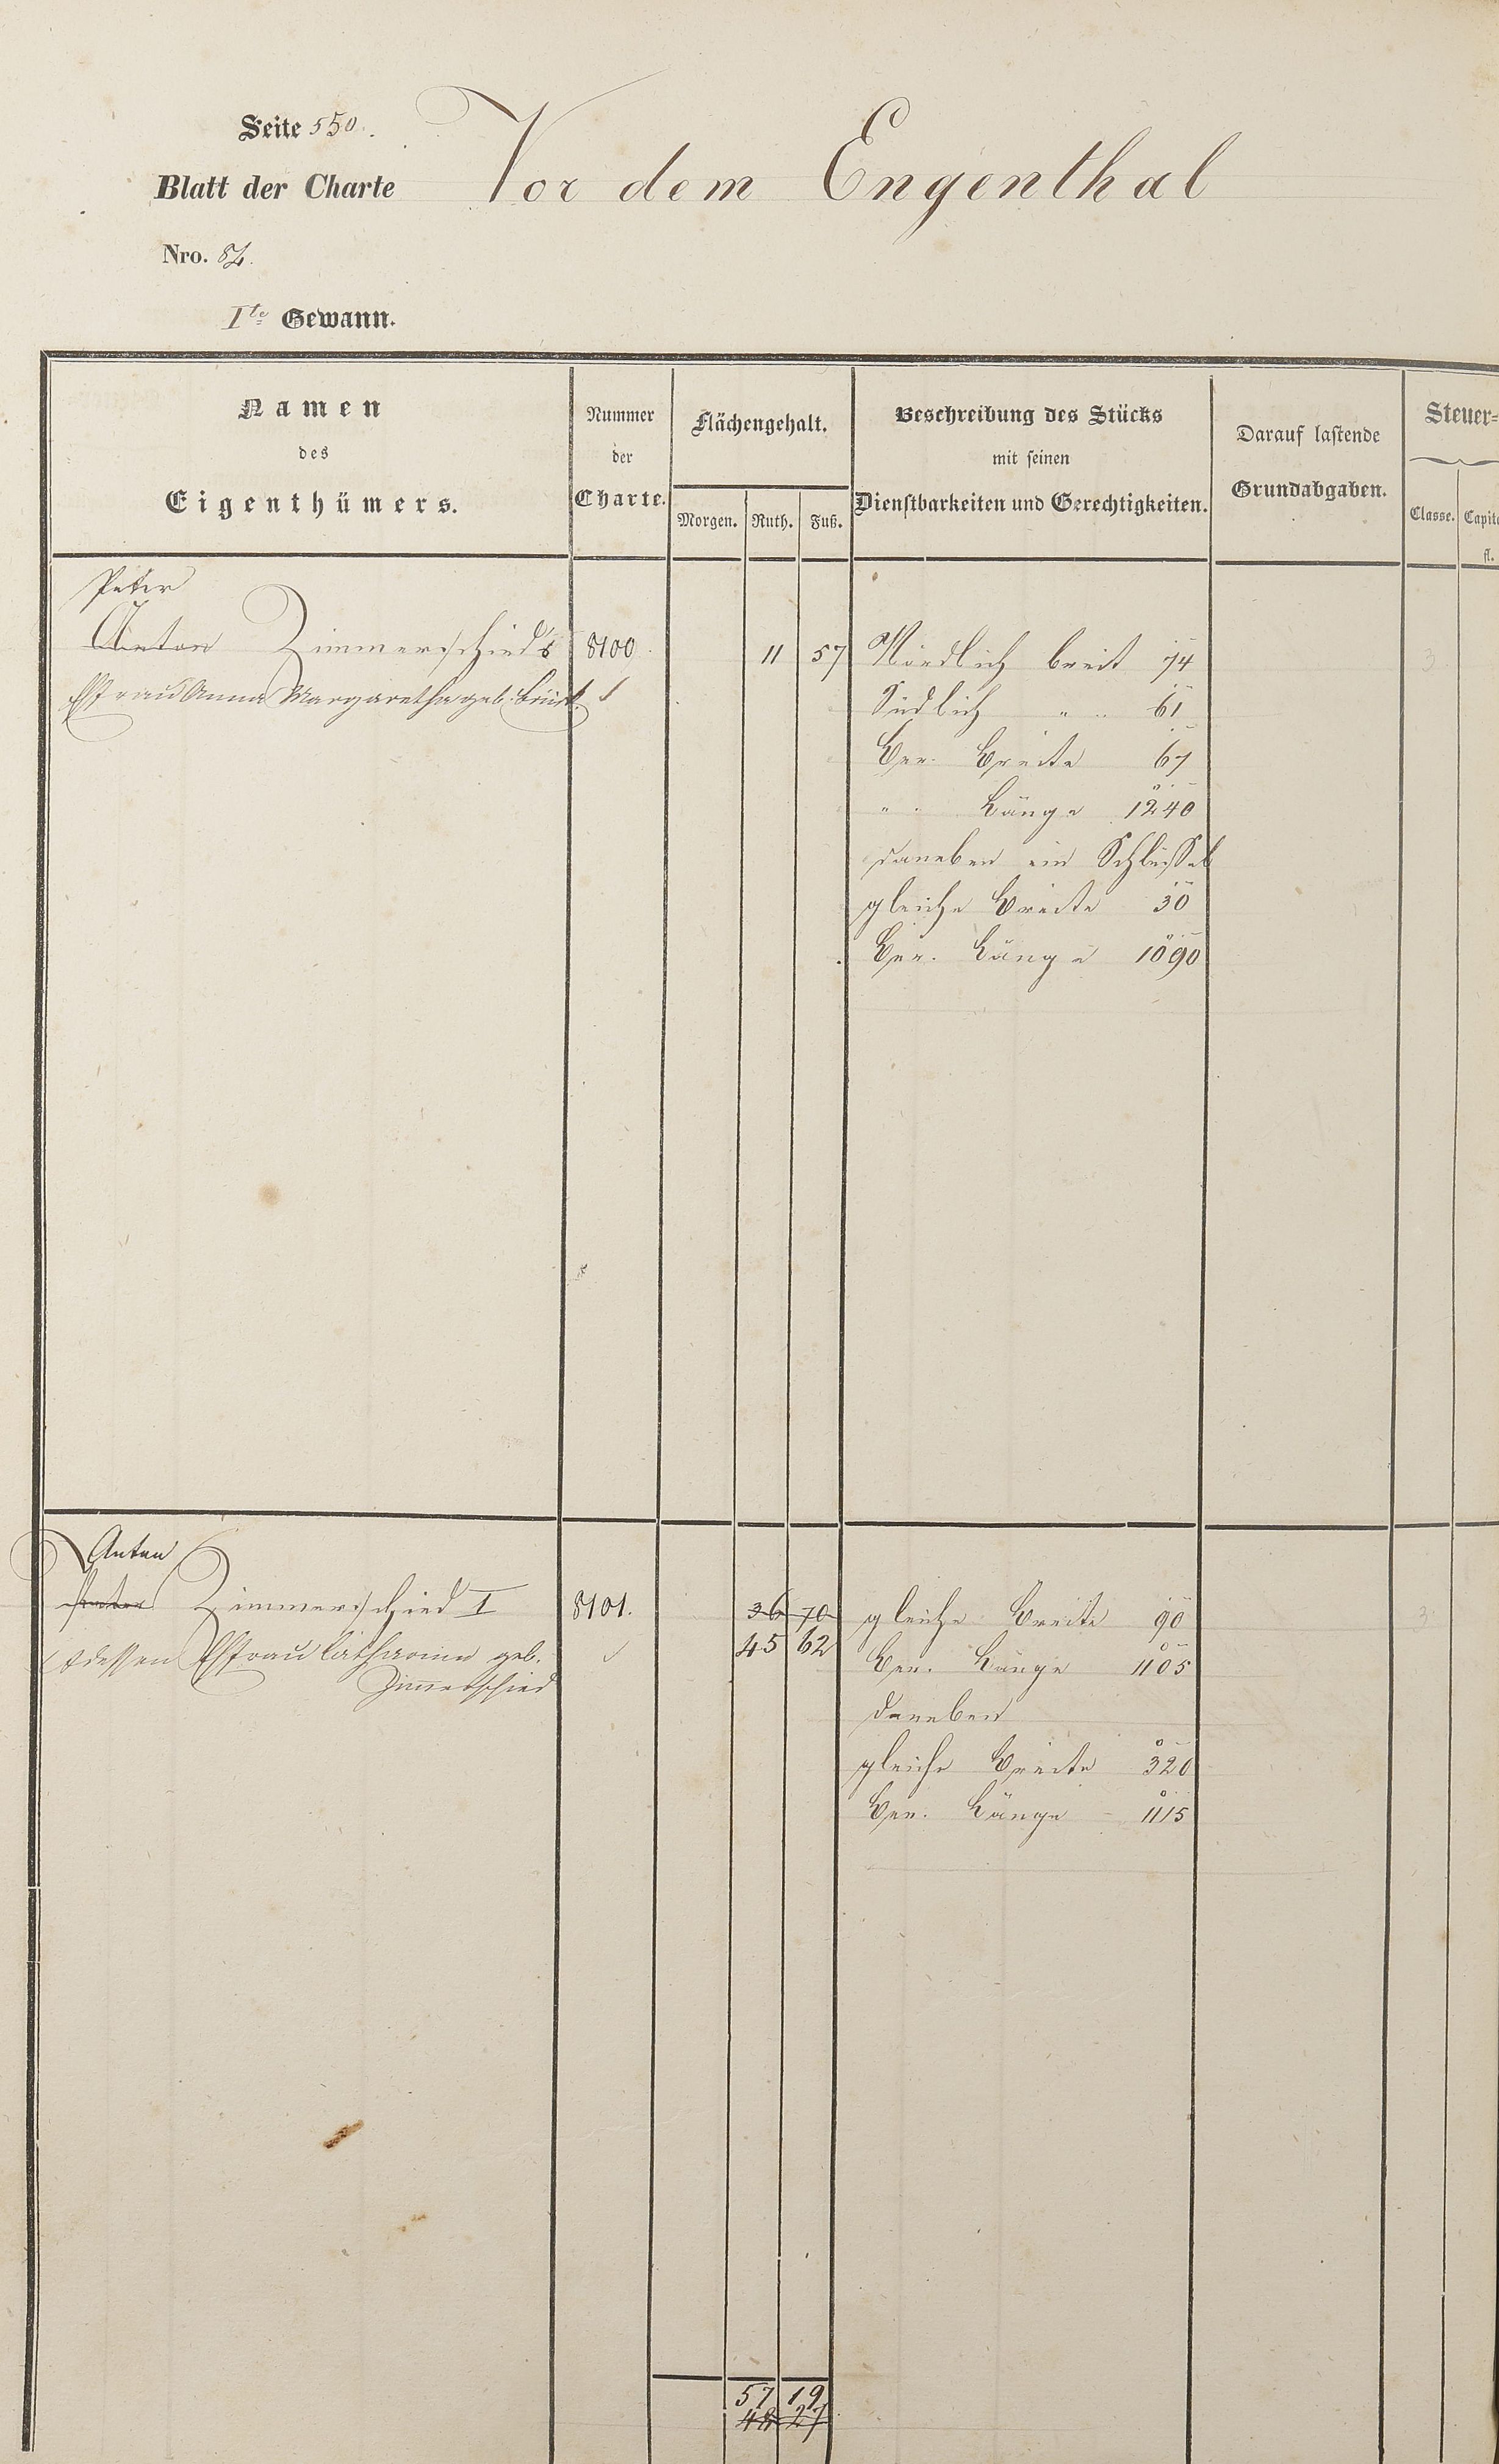 Seite 550.
Blatt der Charte
Vor dem Engenthal
Nro. 82.
Ite Gewann.
Namen
des
Eigenthümers.
Nummer
der
Charte.
Flächengehalt.
Morgen. Ruth. Fuß.
Beschreibung des Stücks
mit seinen
Dienstbarkeiten und Gerechtigkeiten.
Darauf lastende
Grundabgaben.
Steuer=
Classe.
fl.
Peter
Anton Zimmerschieds 8100. 11 57 Nördlich breit 74 3
Ehfrau Anna Margaretha geb.
Südlich " " 61
Ger. Breite 67
" " Länge 1240
daneben ein Schlüssel
gleiche Breite 30
Ger. Länge 1090
Anton
Peter Zimmerschied I 8101. 36 70 gleiche Breite 90 3
dessen Ehfrau Catharina geb. 45 62
Zimerschied
Ger. Länge 1105
daneben
gleiche Breite 320
Ger. Länge 1115
57 19
48 27